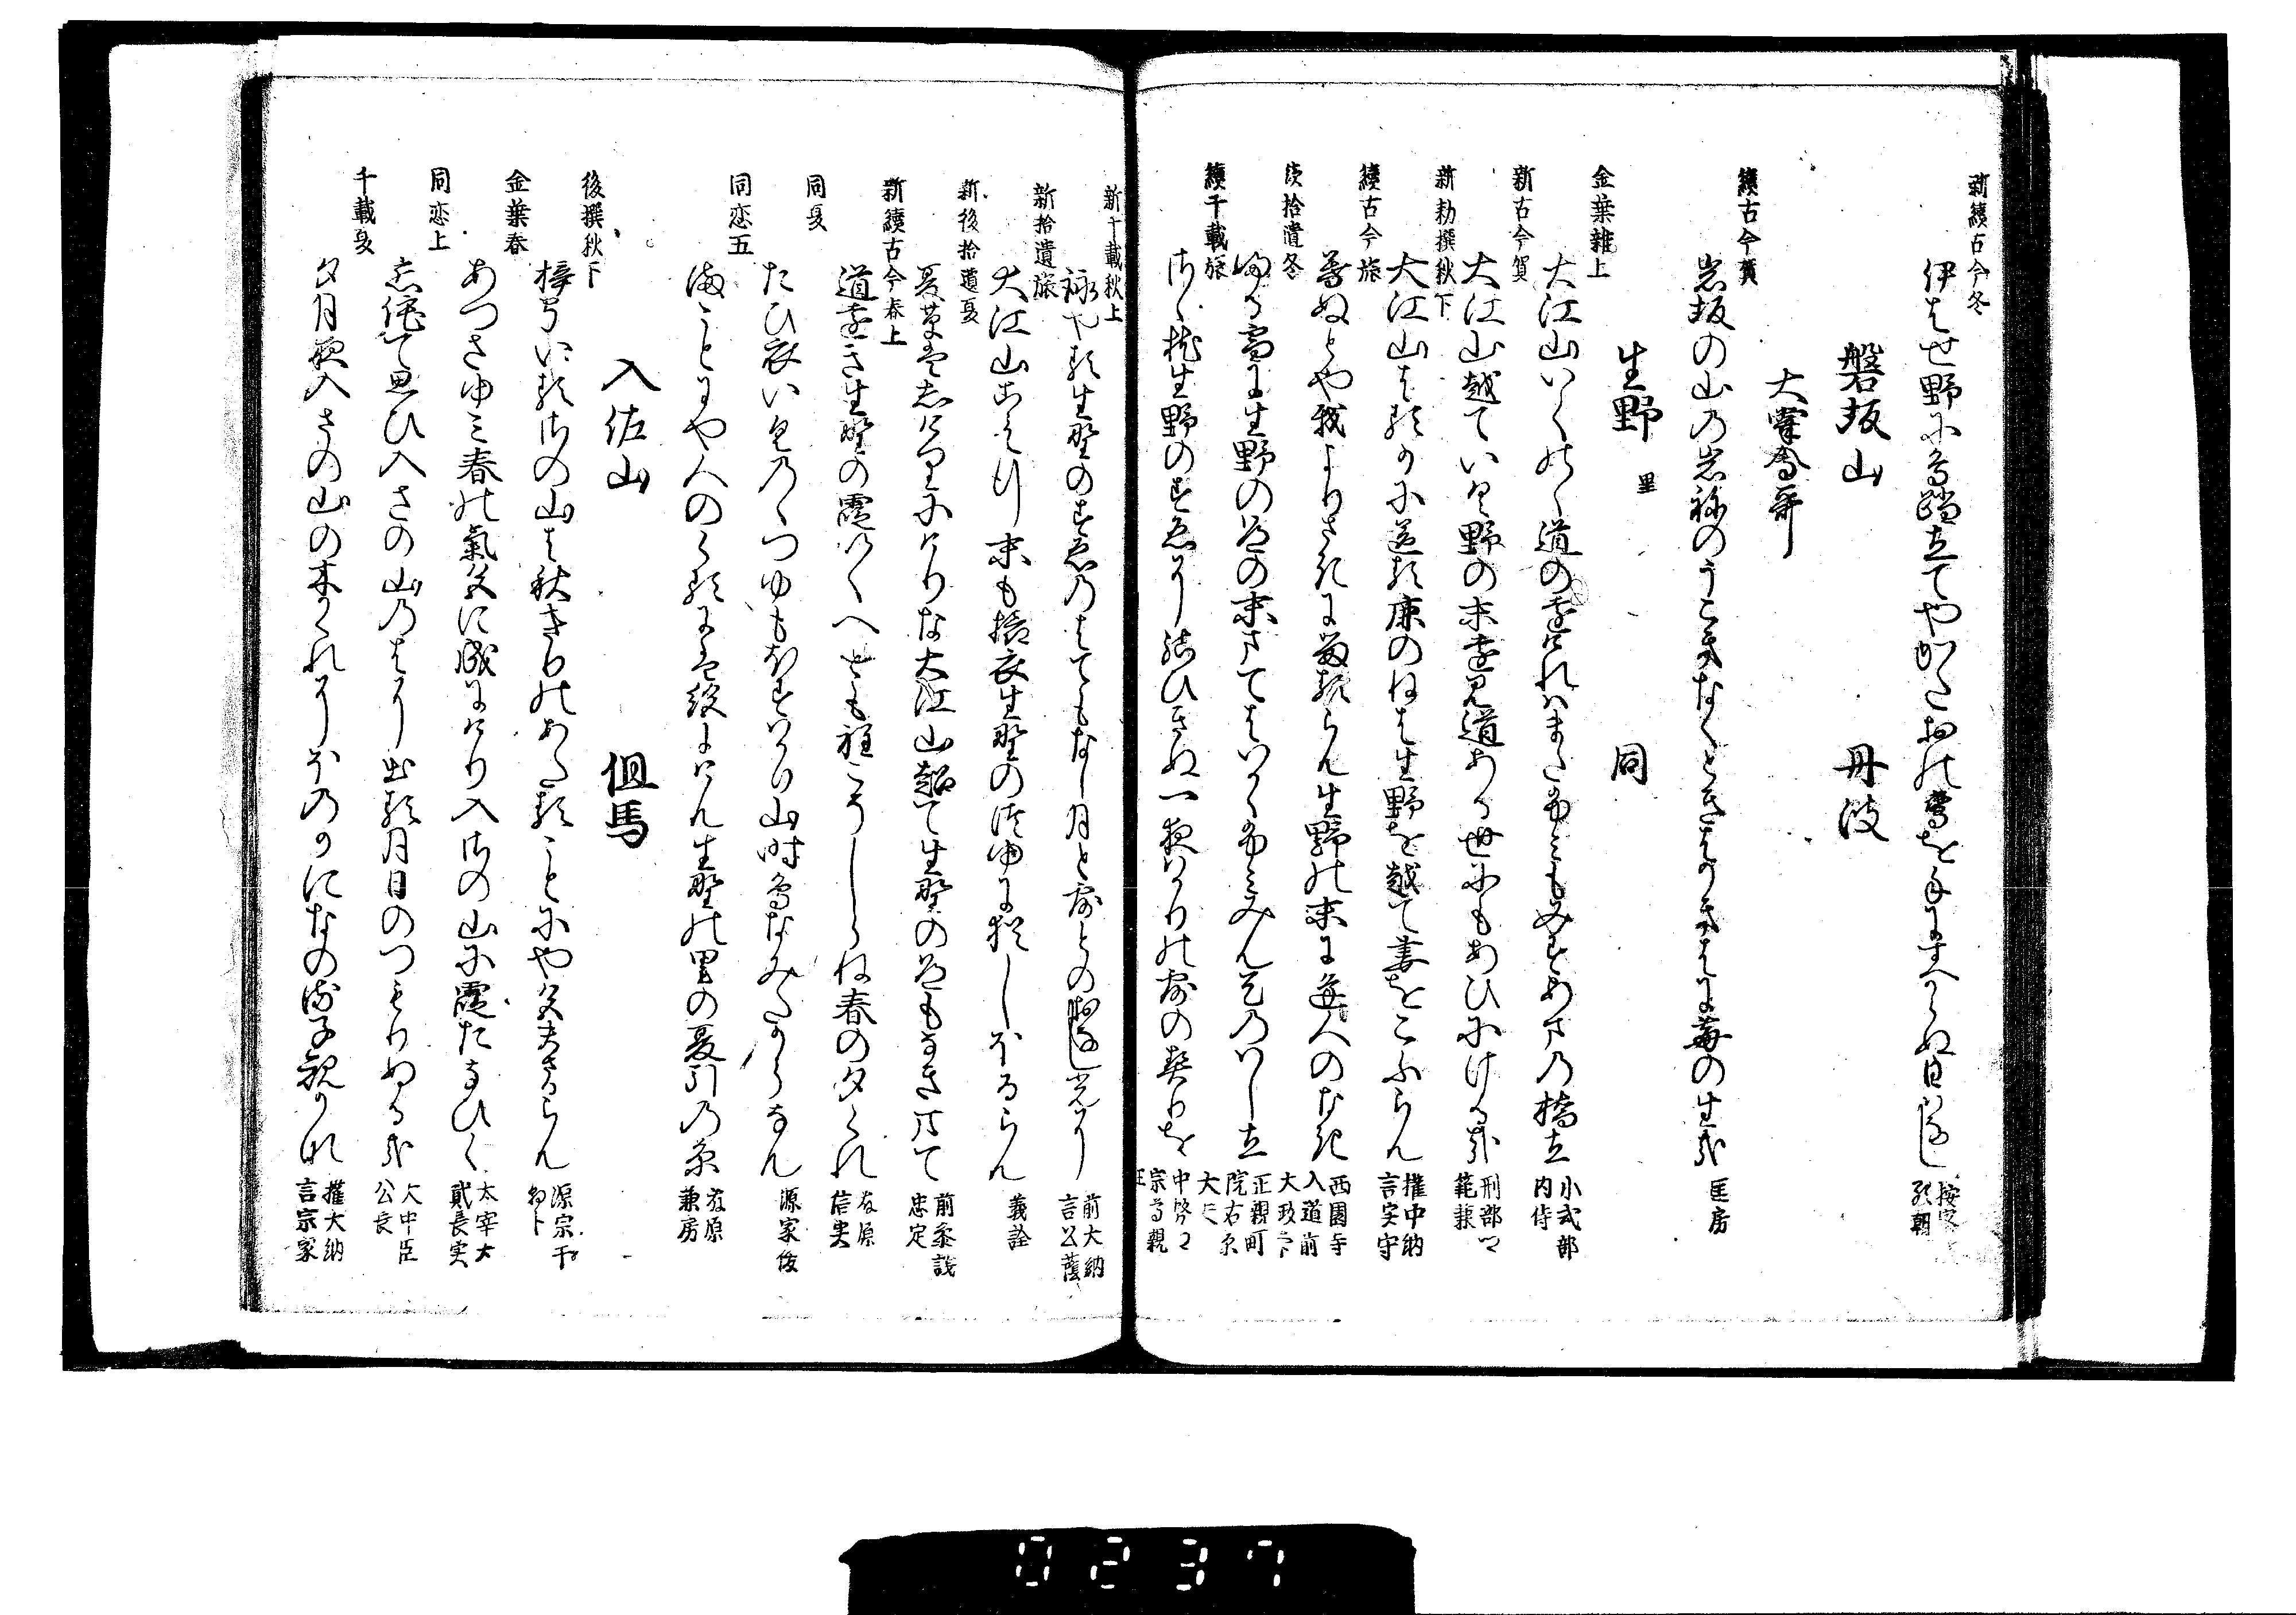 新続古今冬
伊はせ野に鳥踏立てやかたおの鷹を手にすへぬ日はなし
按察顕朝
磐坂山 丹波
大嘗会哥
続古今賀
岩坂の山の岩祢のうこきなくときはかきはに苔の生哉
匡房
生野 里 同
金葉雑上
大江山いくのゝ道の遠けれはまたふみもみすあまの橋立
小式部内侍
新古今賀
大江山越ていく野の末遠見道ある世にもあひにける哉
刑部卿範兼
新勅撰秋下
大江山はるかに送る鹿のねは生野を越て妻をこふらん
権中納言実守
続古今旅
尋ぬとや我よりさきに留るらん生野の末に逢人のなき
西園寺入道前太政大臣
続拾遺冬
ふる雪に生野の道の末まてはいかゝふみみん天のはし立
正親町院右京大夫
続千載旅
さゝ枕生野のすゑに結ひきぬ一夜はかりの露の契りを
中務卿宗尊親王
新千載秋上
詠やる生野のすゑのはてもなし月と露との影し光に
前大納言公蔭
新拾遺旅
大江山こえ行末も旅衣生野の露に猶しほるらん
義詮
新後拾遺夏
夏草はしけりにけりな大江山越て生野の道もなきまて
前参議忠定
新続古今春上
道遠き生野の霞いくへとも程こそしらね春の夕くれ
藤原信実
同夏
たひ衣いくのゝつゆもほすはかり山時鳥なみたからなん
源家俊
同恋五
まことにや人のくるには絶にけん生野の里の夏引の糸
藤原兼房
入佐山 但馬
後撰秋下
梓弓いるさの山は秋きりのあたることにや色まさるらん
源宗于朝臣
金葉春
あつさゆみ春の気色に成にけり入さの山に霞たなひく
太宰大貳長実
同恋上
恋侘て思ひ入さの山のはに出る月日のつもりぬる哉
大中臣公長
千載夏
夕月夜入さの山の木かくれにほのかになのる郭公かな
権大納言宗家
0237